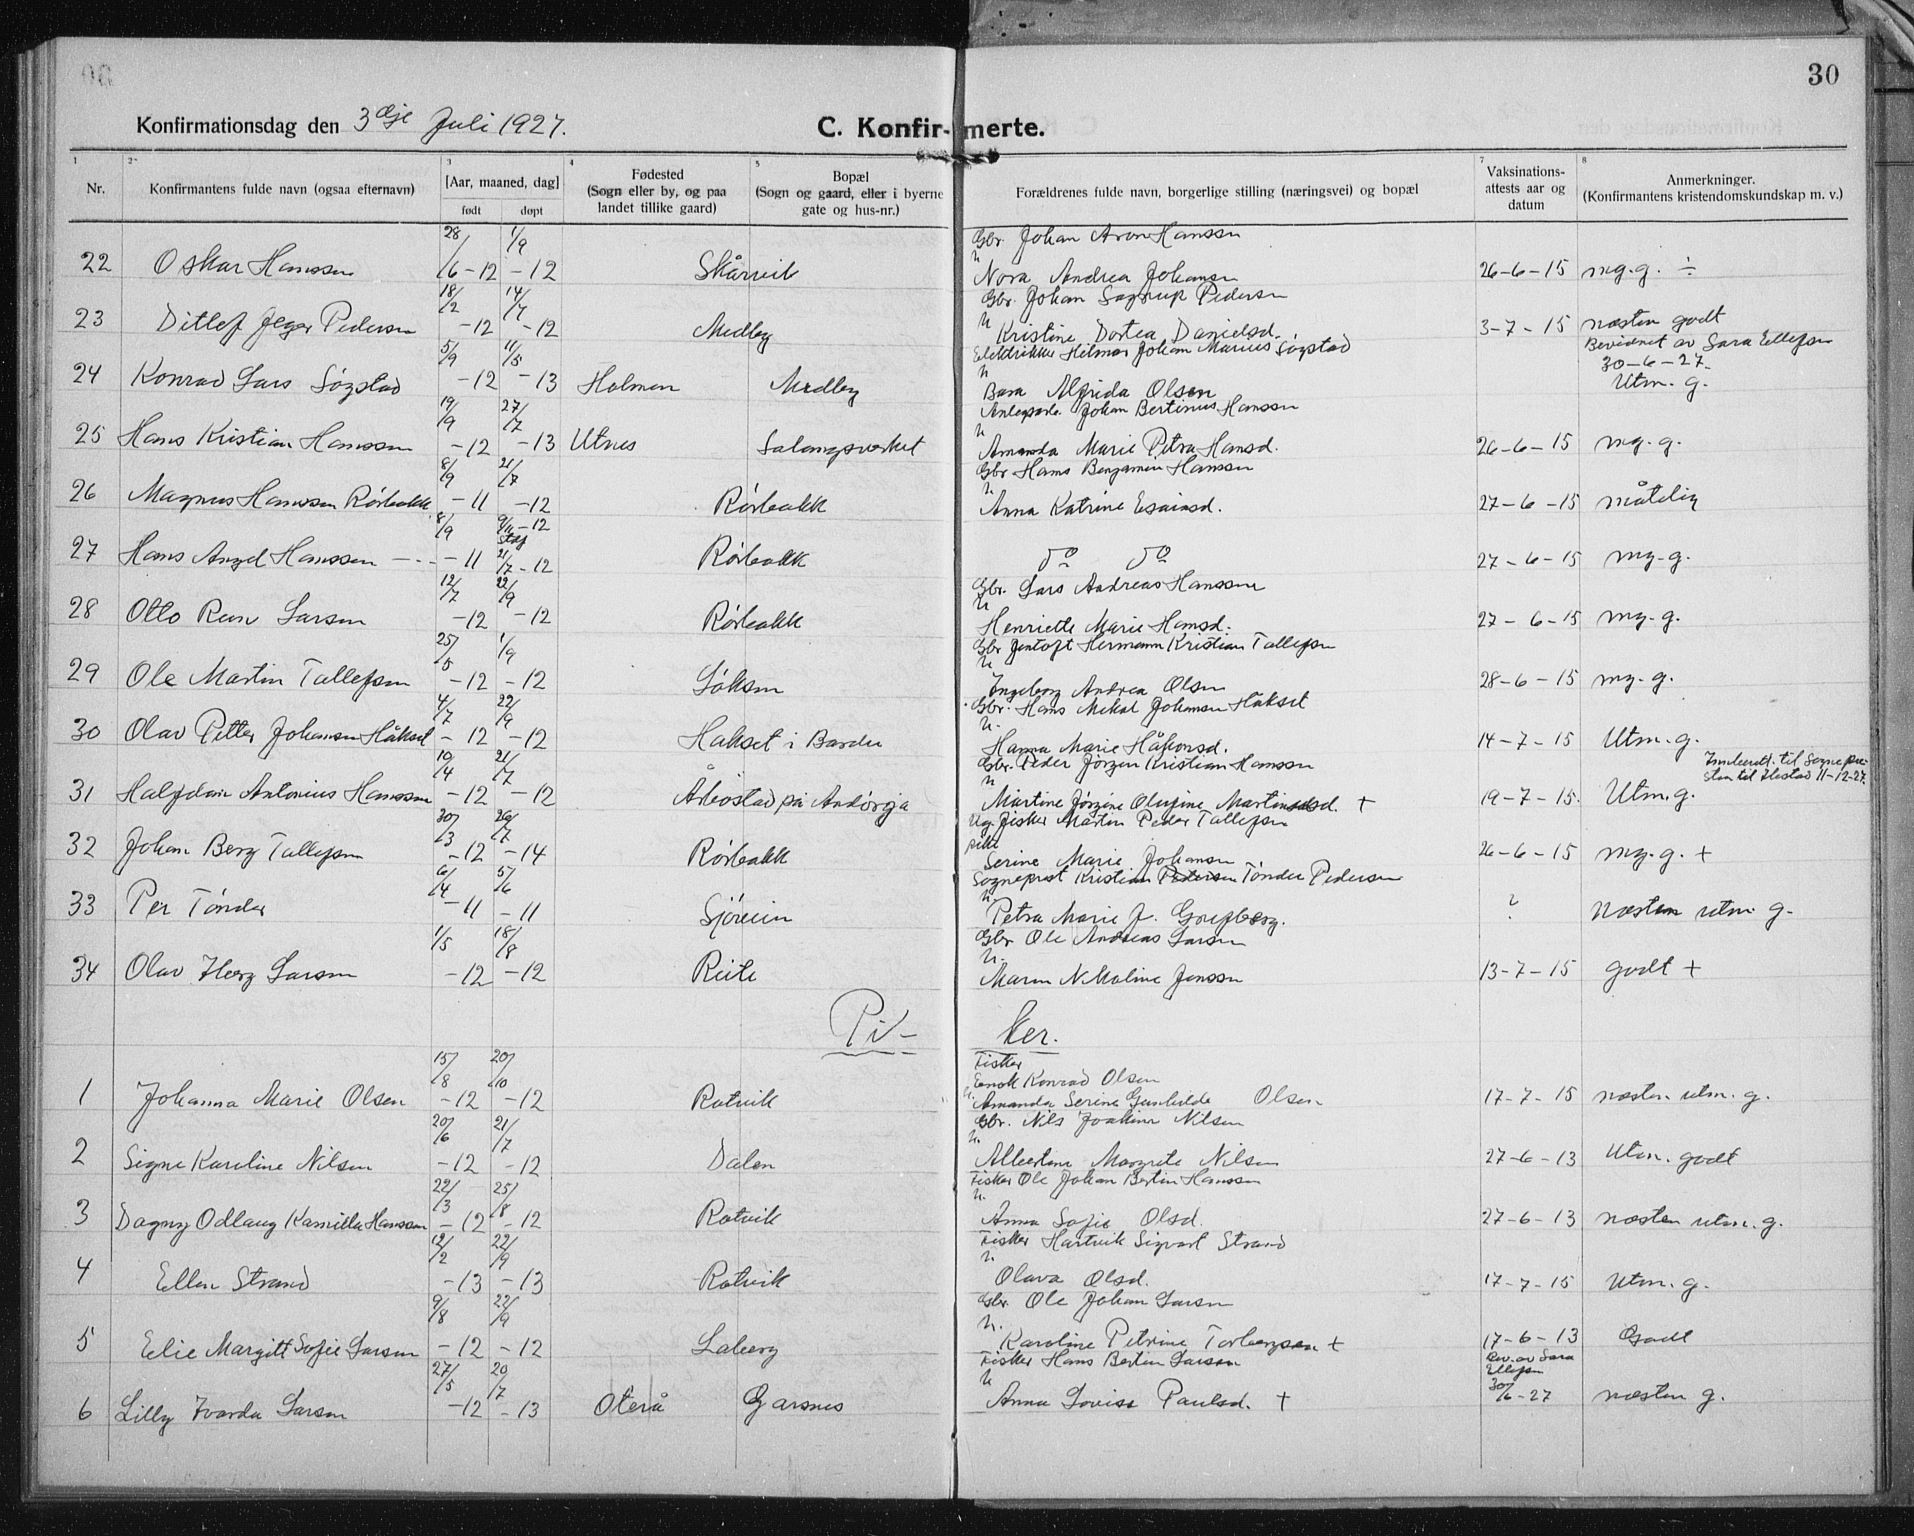 30
Konfirmationsdag den 3dje Juli 1927. C. Konfir- merte.
1 2 3 4 5 7 8
Nr. Konfirmantens fulde navn (ogsaa efternavn) [Aar, maaned, dag] født døpt Fødested (Sogn eller by, og paa landet tillike gaard) Bopæl (Sogn og gaard, eller i byerne gate og hus-nr.) Forældrenes fulde navn, borgerlige stilling (næringsvei) og bopæl Vaksinations-attests aar og datum Anmerkninger. (Konfirmantens kristendomskundskap m. v.)
28/ 1/9 Gbr. Johan Aron Hanssen
22 Oskar Hanssen /6-12 -12 Skårvik Nora Andrea Johansen 26-6-15 mg.g. ÷
18/2 14/7 Gbr. Johan Pedersen
23 Ditlef Jeger Pedersen -12 -12 Medby Kristine Dortea Danielsd. 3-7-15 næsten godt
5/9 11/5 Elektrikker Hilmar Johan Marius Søgstad Bevidnet av Sara Ellefsen 30-6-27.
24 Konrad Lars Søgstad -12 -13 Holmen Medby Alfrida Olsen Utm. g.
19/9 27/7 Johan Bertinus Hanssen
25 Hans Kristian Hanssen -12 -13 Utnes Salangsverket Amanda Marie Petra Hansd. 26-6-15 mg.g.
8/9 21/7 Gbr Hans Benjamin Hanssen
26 Magnus Hanssen Rørbakk -11 -12 Rørbakk Anna Katrine Esaiasd. 27-6-15 måtelig
8/9 -12
27 Hans Angel Hanssen -"- -11 21/7-12 Rørbakk do do 27-6-15 mg.g.
12/7 22/9 Gbr. Lars Andreas Hanssen
28 Otto Larsen -12 -12 Rørbakk Henriette Marie Hansd. 27-6-15 mg.g.
25/5 1/9 Gbr Jentoft Hermann Kristian Tollefsen
29 Ole Martin Tollefsen -12 -12 Løksen Ingeborg Andrea Olsen 28-6-15 mg.g.
4/7 22/9 Gbr. Hans Mikal Johansen Håkset
30 Olav Petter Johansen Håkset -12 -12 Håkset i Bardu Hanna Marie Håkonsd. 14-7-15 Utm.g.
19/4 21/7 Gbr. Peder Jørgen Kristian Hanssen til Sogneprsten til Ibestad 11-12-27.
31 Halfdan Antonius Hanssen -12 -12 Årbostad på Andørja Martine Jørgine Olufine Martinsd. + 19-7-15. Utm.g.
30/3 26/7 Ug. fisker Martin Peder Tollefsen
32 Johan Berg Tollefsen -12 -14 Rørbakk pike Serine Marie Johansen 26-6-15 mg.g. +
6/4 5/6 Sogneprst Kristian Pedersen Tønder Pedersen
33 Per Tønder -11 -11 Sjøvein Petra Marie J. ? næsten utm. g.
1/5 18/8 Gbr Ole Andreas Larsen
34 Olav Herg Larsen -12 -12 Reite Maren Nikoline Jenssen 13-7-15 godt +
Pi- ker.
15/8 20/10 Fisker Enok Konrad Olsen
1 Johanna Marie Olsen -12 -12 Rotvik Amanda Serine Gunhilde Olsen 17-7-15 næsten utm. g.
20/6 21/7 Gbr. Nils Joakim Nilsen
2 Signe Karoline Nilsen -12 -12 Dalen Albertine Margrete Nilsen 27-6-13 Utm. godt
22/3 25/8 Fisker Ole Johan Bertin Hanssen
3 Dagny Odlaug Kamilla Hanssen -12 -12 Rotvik Anna Sofie Olsd. 27-6-13 næsten utm. g.
12/2 22/9 Fisker Hartvik Sigvart Strand
4 Ellen Strand -13 -13 Rotvik Olava Olsd. 17-7-15 Utm. g.
9/8 22/9 Gbr. Ole Johan Larsen
5 Elie Margitt Sofie Larsen -12 -12 Laberg Karoline Petrine Torbergsen + 17-6-13 Godt
27/5 20/7 Fisker Hans Bertin Larsen Bev. av Sara Ellefsen
6 Lilly Ivarda Larsen -12 -13 Oterå Garsnes Anna Lovise Paulsd. + 30/6-27 næsten g.